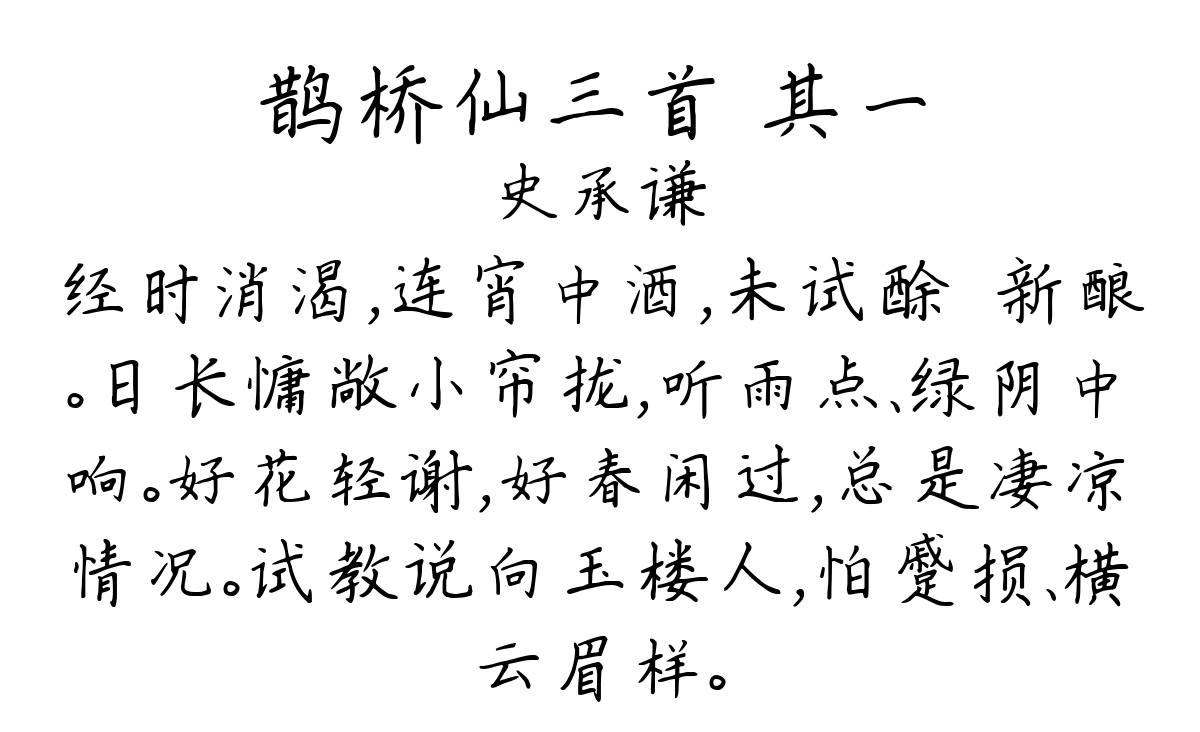 鹊桥仙三首 其一
史承谦
经时消渴,连宵中酒,未试酴 新酿
。日长慵敞小帘拢,听雨点、绿阴中
响。好花轻谢,好春闲过,总是凄凉
情况。试教说向玉楼人,怕蹙损、横
云眉样。